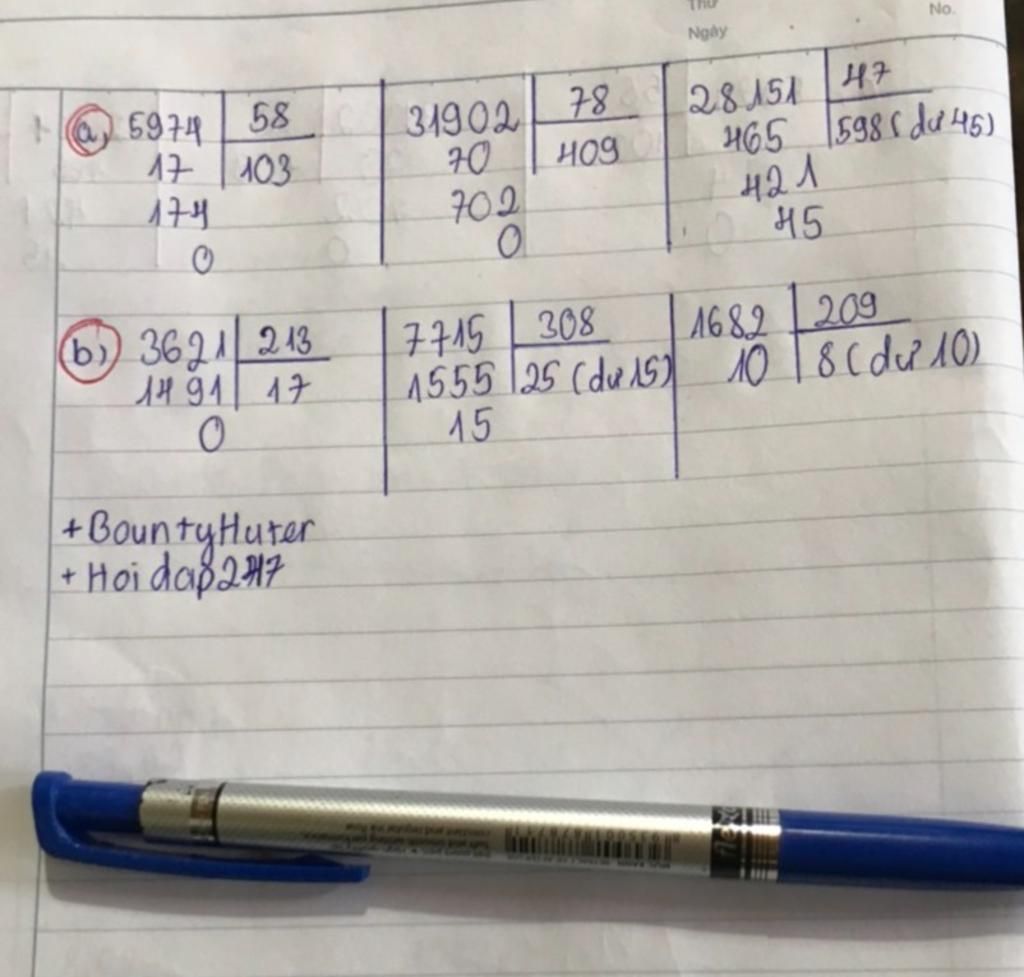 Thứ
Ngày
No.
a, 5974 58 31902 78 28151 47
17 103 70 409 465 598 (dư 45)
174 702 421
0 0 45
b) 3621 213 7715 308 1682 209
1491 17 1555 25 (dư 15) 10 8 (dư 10)
0 15
+BountyHuter
+Hoidap247